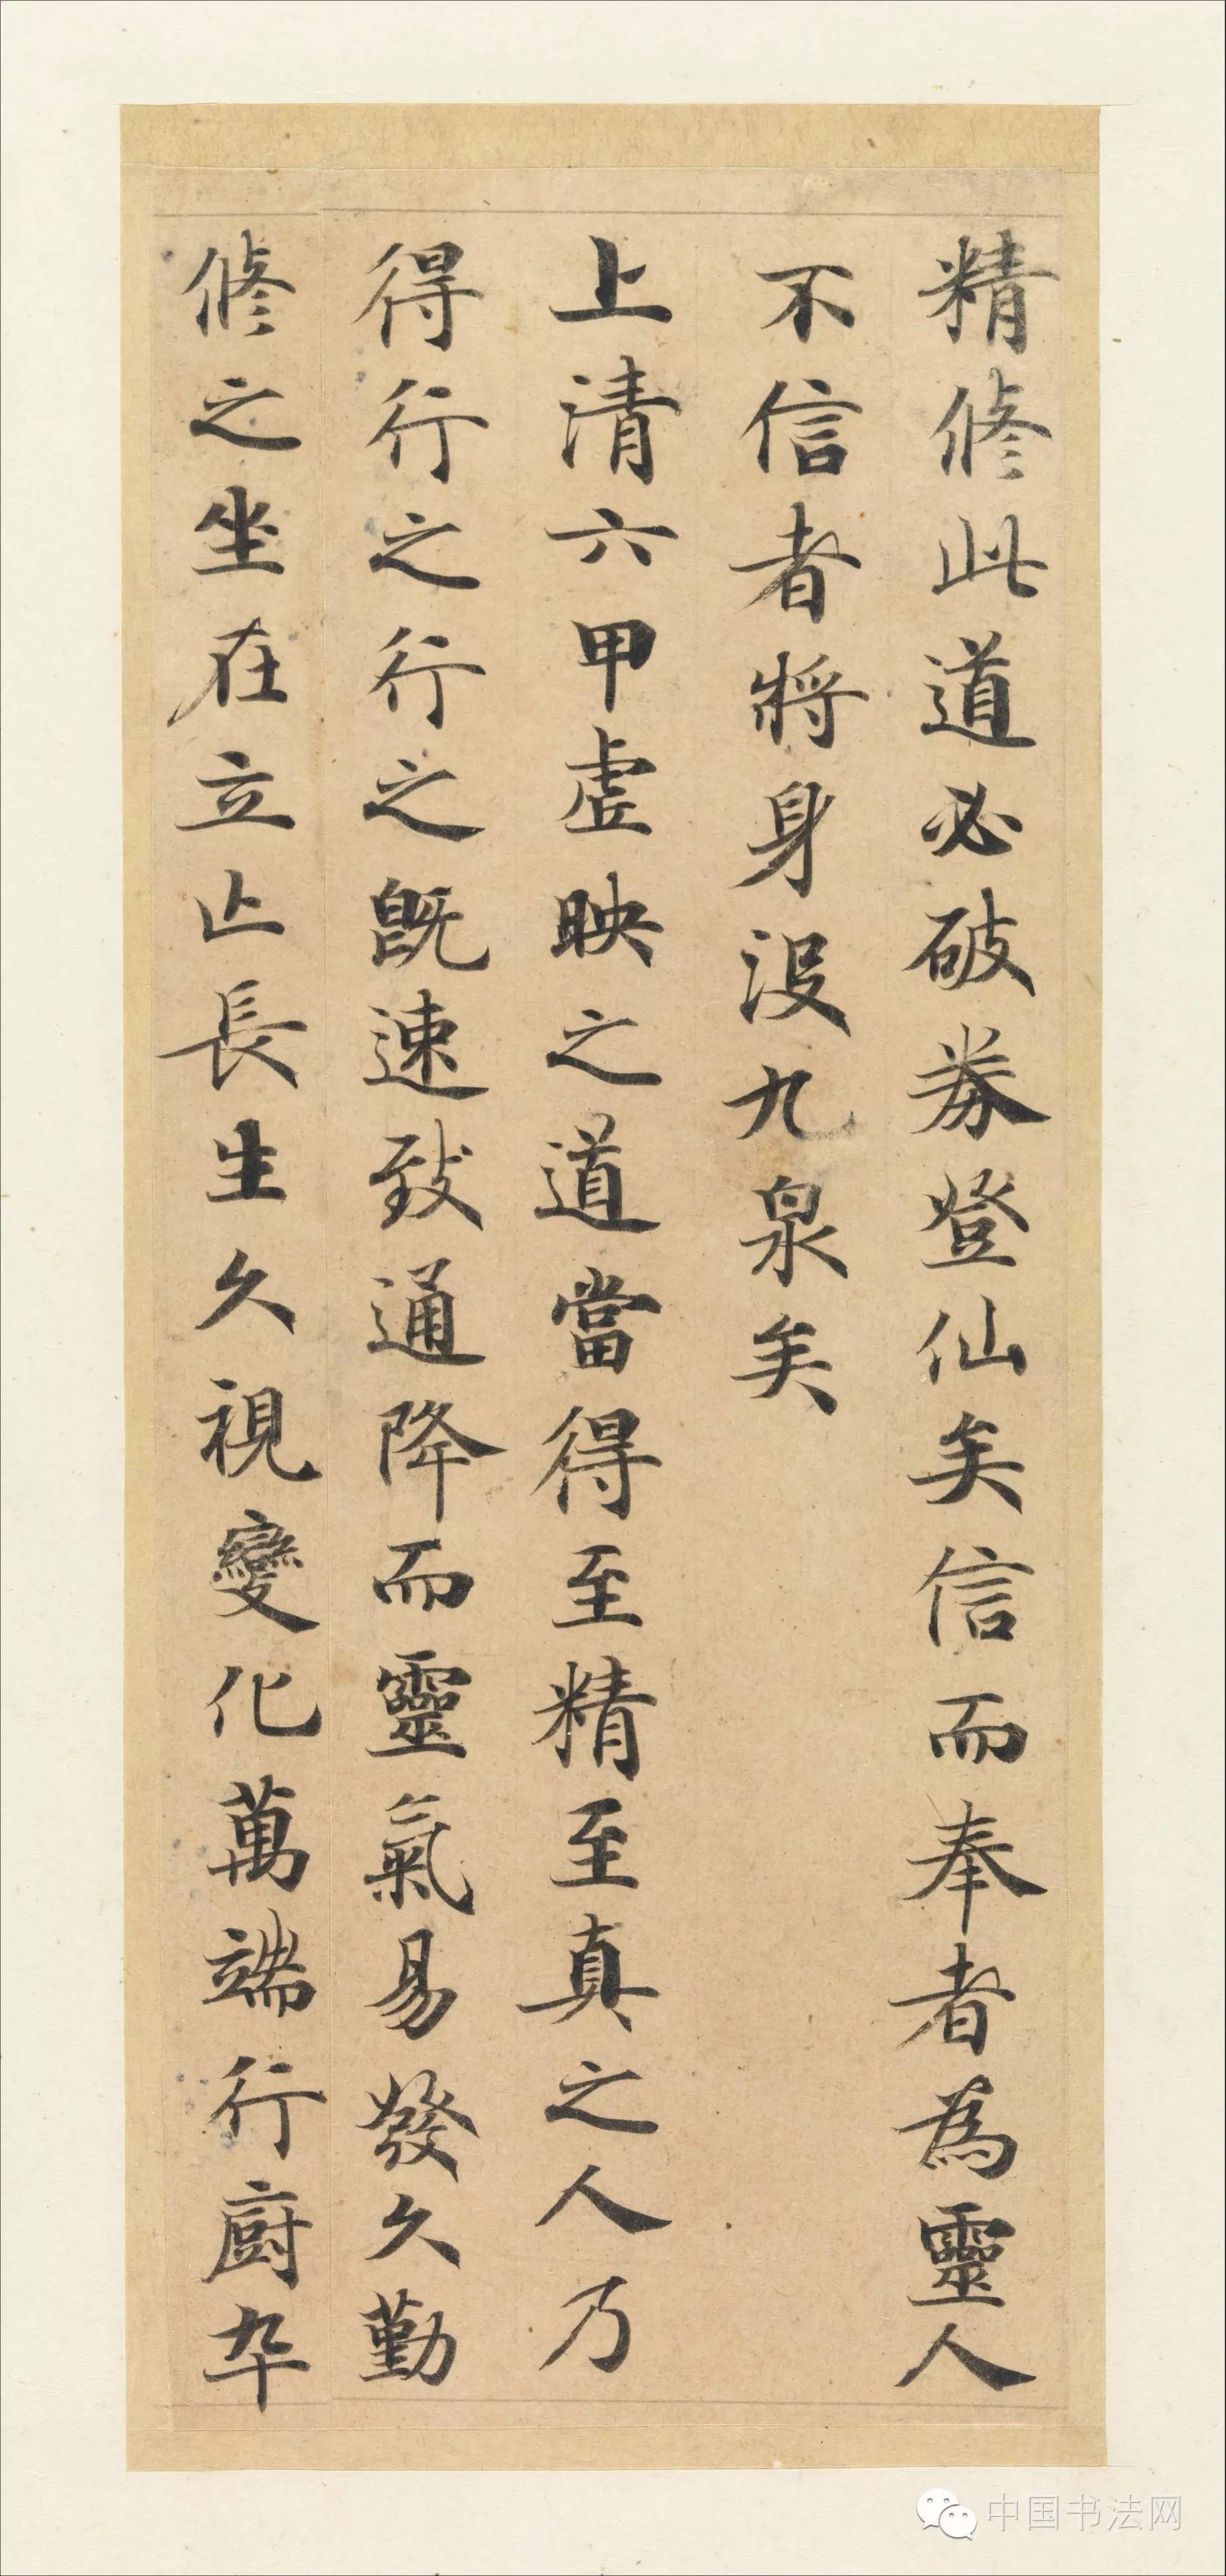 精脩此道必破券登仙矣信而奉者為靈人
不信者將身没九泉矣
上清六甲虛映之道當得至精至真之人乃
得行之行之既速致通降而靈氣易發久勤
脩之坐在立亾長生久視變化萬端行廚卒
中国书法网